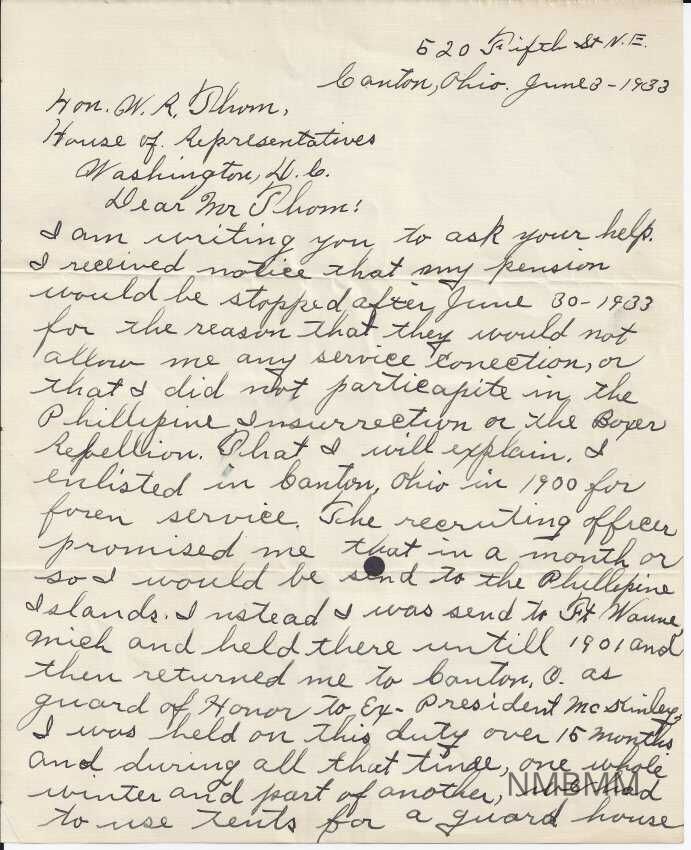 520 Fifth St N.E.
Canton, Ohio. June 3 - 1933
Hon. W. R. Thom,
House of Representatives
Washington, D.C.
Dear Mr Thom:
I am writing you to ask your help.
I received notice that my pension
would be stopped after June 30 - 1933
for the reason that they would not
allow me any service conection, or
that I did not particapite in the
Phillipine Insurrection or the Boxer
Rebellion. That I will explain. I
enlisted in Canton, Ohio in 1900 for
foren service. The recruting officer
promised me that in a month or
so I would be send to the Phillipine
Islands. Instead I was send to Ft Wayne,
Mich and held there untill 1901 and
then returned me to Canton, O. as
guard of Honor to Ex-President McKinley,
I was held on this duty over 15 months
and during all that time, one whole
winter and part of another, we had
to use tents for a guard house
NMBMM